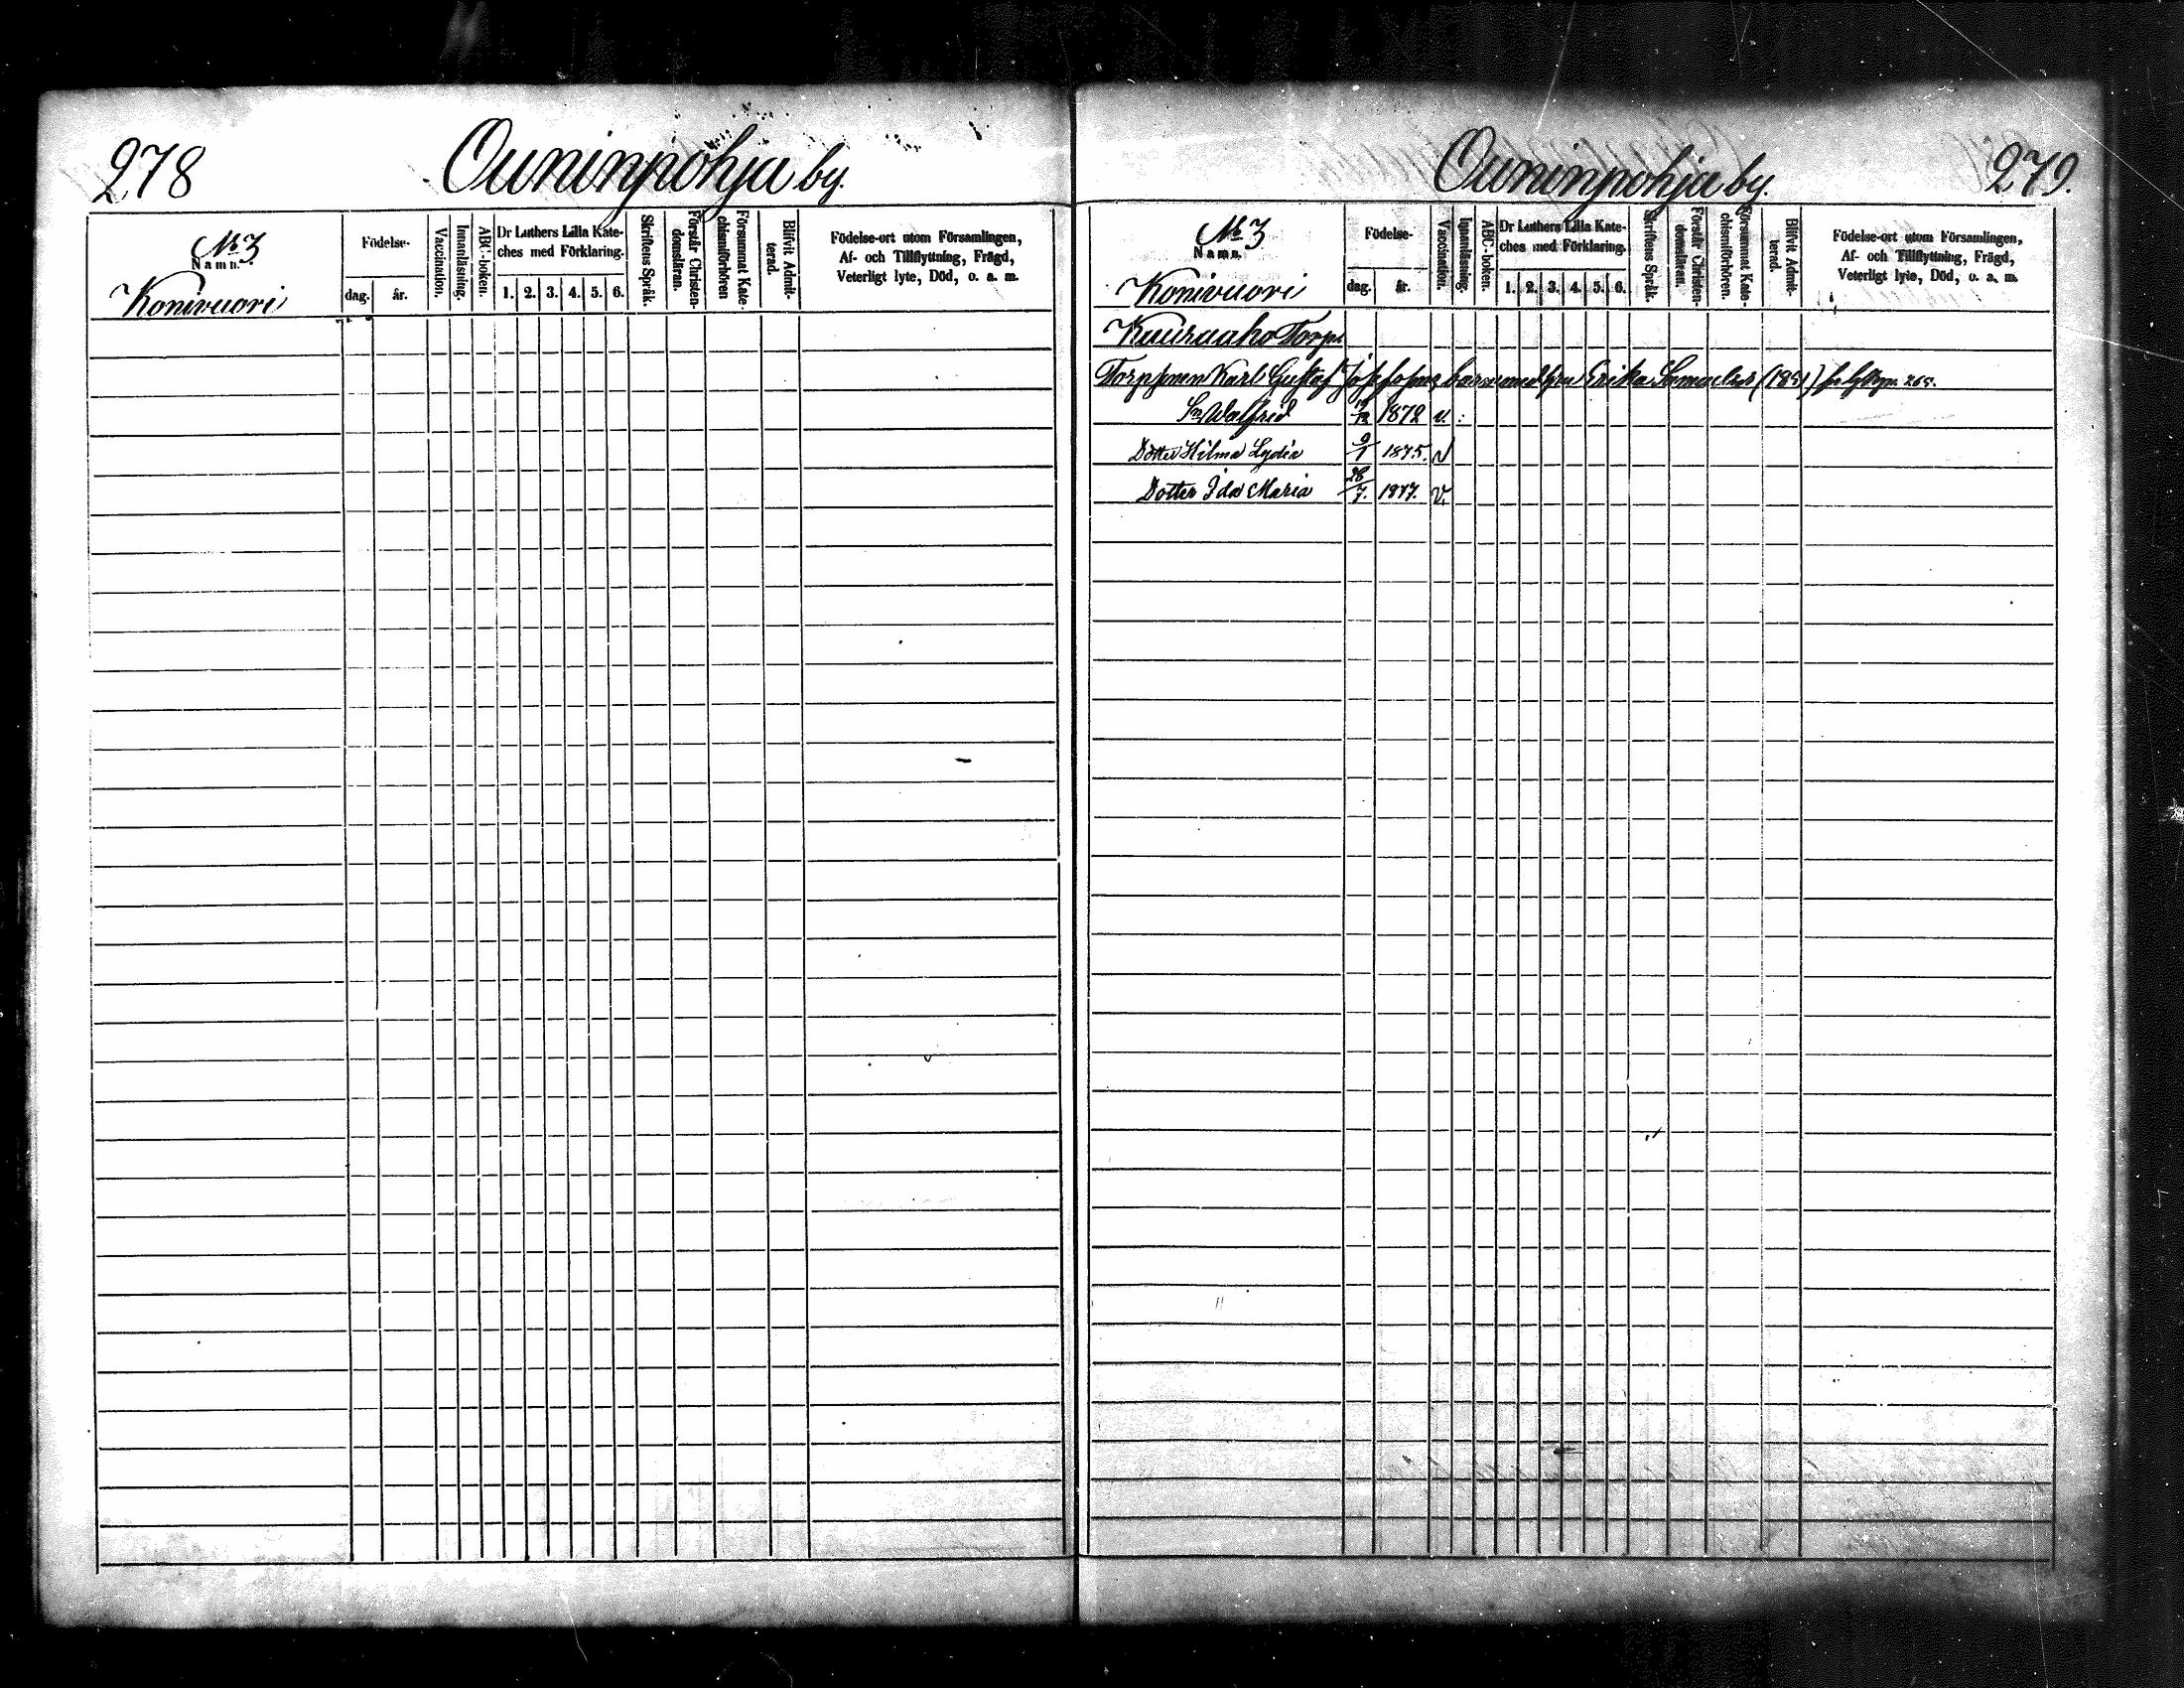 278
Ouninpohja by.
No 3
Namn.
Konivuori
Födelse-
dag.
år.
Vaccination.
Innanläsning.
ABC-boken.
Dr Luthers Lilla Kate-
ches med Förklaring.
1. 2. 3. 4. 5. 6.
Skriftens Språk.
Förstår Christen-
domsläran.
Försummat Kate-
chismiförhören
Blifvit Admit-
terad.
Födelse-ort utom Församlingen,
Af- och Tillflyttning, Frägd,
Veterligt lyte, Död, o. a. m.
Ouninpohja by.
279.
No 3
Namn.
Konivuori
Födelse-
dag.
år.
Vaccination.
Innanläsning.
ABC-boken.
Dr Luthers Lilla Kate-
ches med Förklaring.
1. 2. 3. 4. 5. 6.
Skriftens Språk.
Förstår Christen-
domsläran.
Försummat Kate-
chismiförhören.
Blifvit Admit-
terad.
Födelse-ort utom Församlingen,
Af- och Tillflyttning, Frägd,
Veterligt lyte, Död, o. a. m.
Kuuraaho Torp
Karl Gustaf barn med Erika (1851) 265.
Sn Walfrid 1872 v.
Dotter Hilma Lydia 9/1 1875. v
Dotter Ida Maria 28/7. 1877. v.